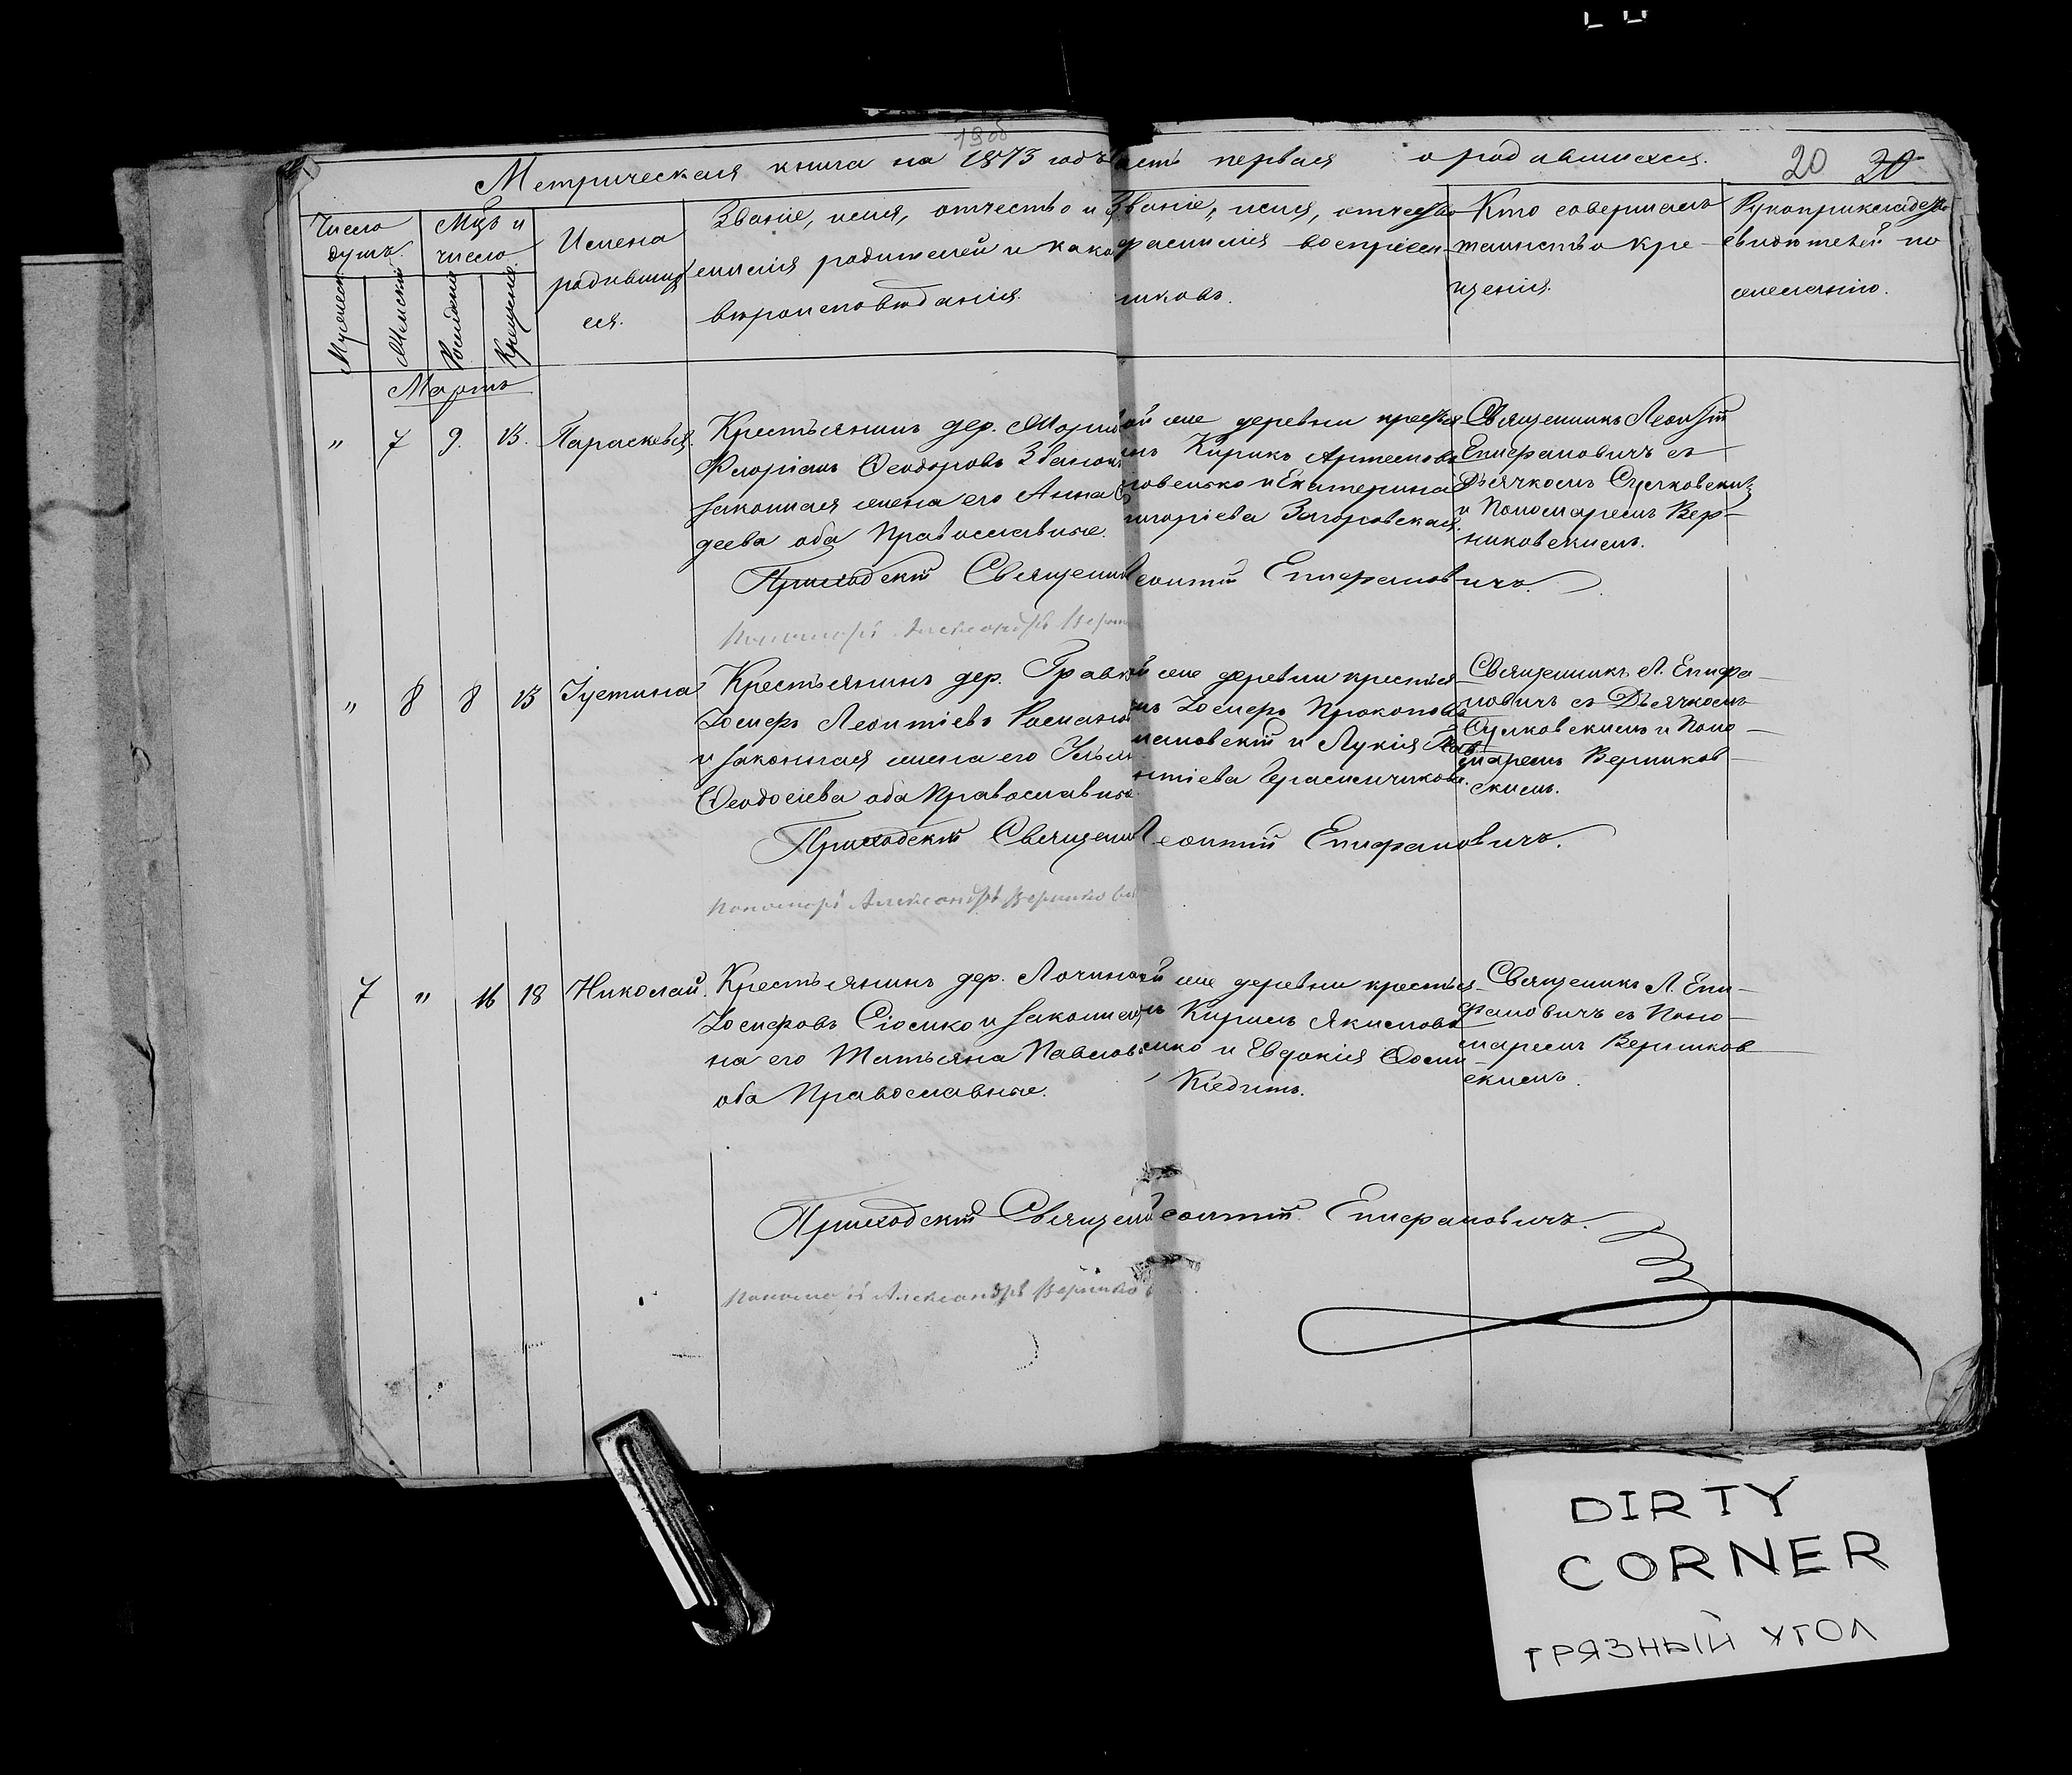 19об
Метрическая книга на 1873 годъ часть первая о родившихся. 20 20
Число душъ.
Мужеска
Женска
Мцъ и число
Рожденія
Крещенія
Имена родившихся.
Званіе, имя, отчество и
милія родителей и како
вѣроисповѣданія.
Званіе, имя, отчество
фамилія воспріем-
никовъ.
Кто совершалъ
таинство кре-
щенія.
Рукоприкладство
свидѣтелей по
желанію.
Мартъ
" 7 9. 13. Параскевія.
Крестьянинъ дер.
Флоріанъ Ѳеодоровъ
законная жена его Анна
деева оба Православные.
же деревни кресть
Кирикъ Артемовъ
и Екатерина
Загоровская.
Священникъ Леонтій
Епифановичъ съ
Дьячкомъ Сулковскимъ
и Пономаремъ Вер-
никовскимъ.
Приходскій Священ Леонтій Епифановичъ.
Пономарь Александръ Верни
" 8 8 13 Іустина
Крестьянинъ дер. Гравк
Іосифъ Леонтіевъ Роман
и законная жена его
Ѳеодосіева оба Православные.
й же деревни крестья
нъ Іосифъ Прокоповъ
и Лукія
нтіева Герасимчикова.
Священникъ Л. Епифа-
новичъ съ Дьячкомъ
Сулковскимъ и Поно-
маремъ Верников-
скимъ.
Приходскій Священ Леонтій Епифановичъ.
Пономарь Александръ Вернико
7 " 16 18 Николай.
Крестьянинъ дер.
Іосифовъ Сіомко и законная
на его Татьяна Павлов
оба Православные.
й же деревни крестья-
нъ Кирилъ Якимовъ
и Евдокія
Священникъ Л. Епи-
фановичъ съ Поно-
маремъ Верников-
скимъ.
Приходскій Священ Леонтій Епифановичъ.
Пономарь Александръ Вернико
DIRTY
CORNER
ГРЯЗНЫЙ УГОЛ